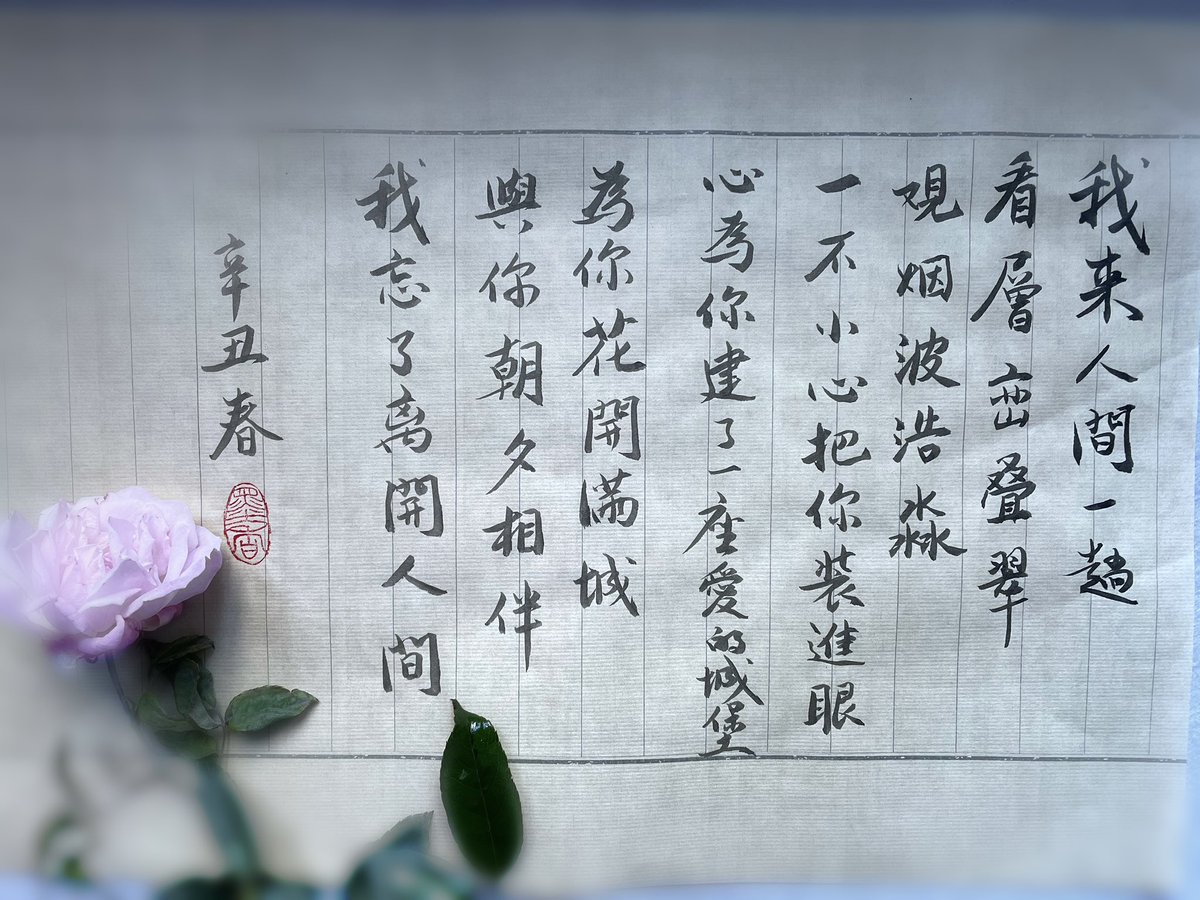 我来人間一趟
看層峦叠翠
观烟波浩淼
一不小心把你装進眼
心為你建了一座愛的城堡
為你花開满城
與你朝夕相伴
我忘了离開人間
辛丑春